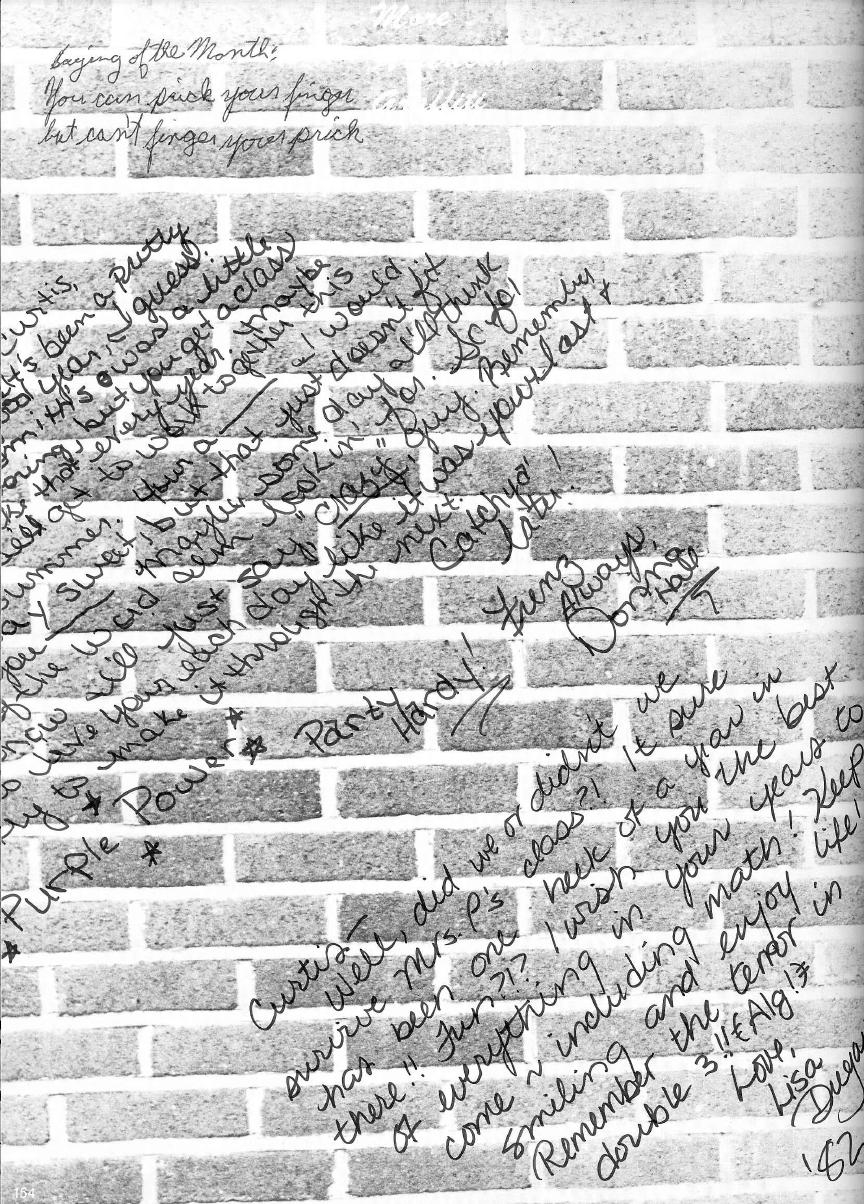 More
Saying of the Month:
You can prick your finger
but can't finger your prick
Curtis,
It's been a pretty
year, I guess.
Smith's was a little
boring, but you get a class
like that every year. Maybe
get to work together this
summer. Have a
I would
say sweat, but that just doesn't fit
you Maybe some day I'll think
of the word I'm lookin' for. So for
now I'll just say, "classy" guy. Remember,
to live your each day like it was your last &
try to make it through the next.
Catchya'
later!
Frenz
Always,
Donna
Hall
Party
Hardy!
*Purple * Power*
Curtis—
Well, did we or didn't we
survive Mrs. P's class?! It sure
has been one heck of a year in
there!! Fun?!? I wish you the best
of everything in your years to
come ~ including math! Keep
smiling and enjoy life!
Remember the terror in
double 3!! (Alg!)
Love,
Lisa
Dugan
'82
164